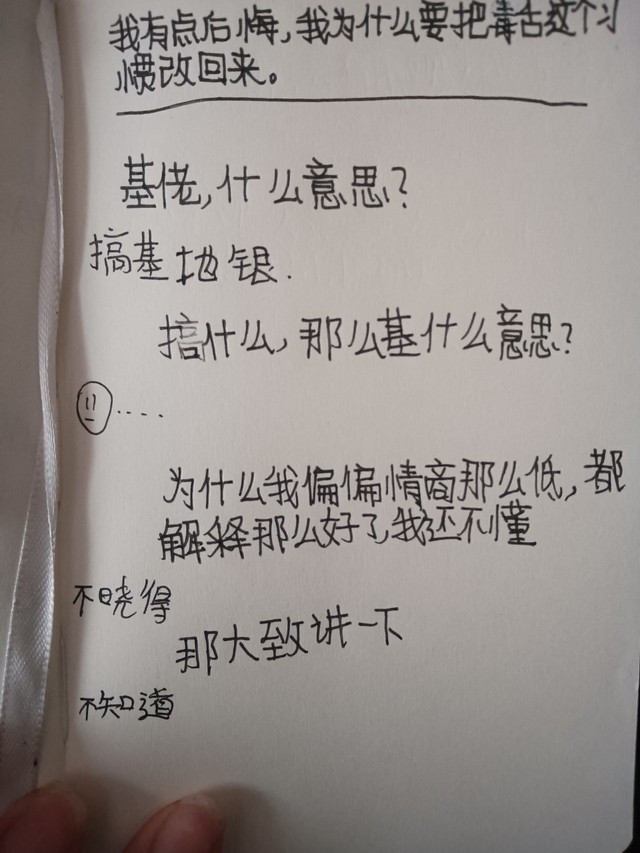 我有点后悔,我为什么要把毒舌这个习
惯改回来。
基佬,什么意思?
搞基地银.
搞什么,那么基什么意思?
....
为什么我偏偏情商那么低,都
解释那么好了,我还不懂
不晓得
那大致讲一下
不知道